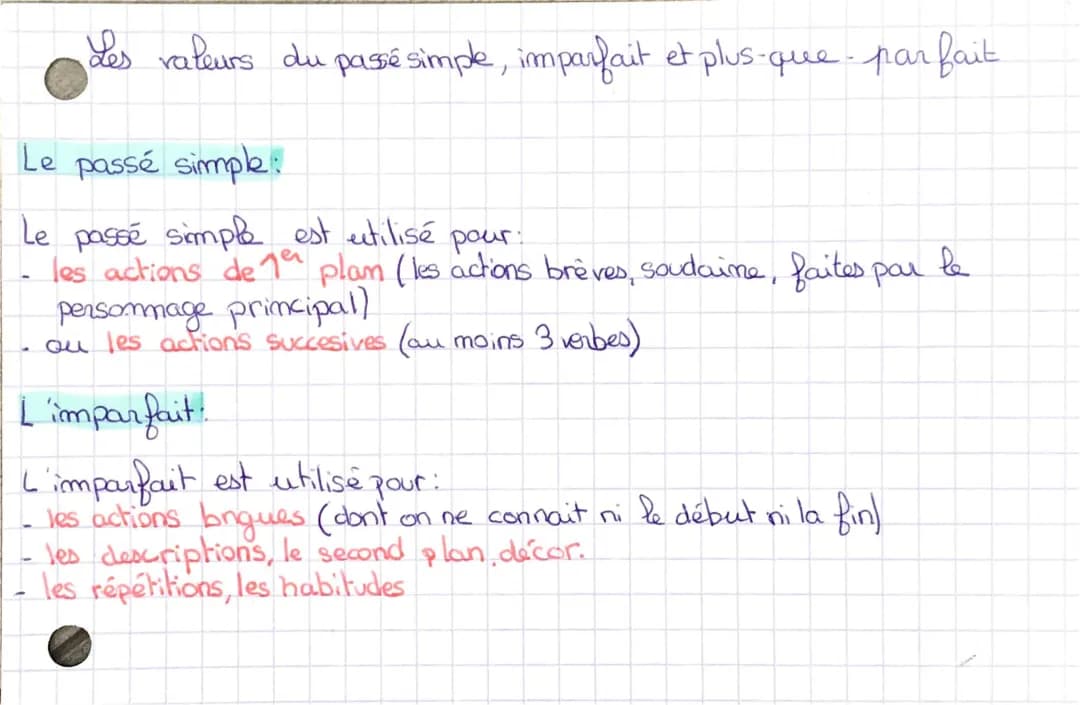 Les valeurs du passé simple, imparfait et plus-que-parfait
Le passé simple:
Le passé simple est utilisé pour:
- les actions de 1er plan (les actions brèves, soudaine, faites par le
personnage principal)
- ou les actions succesives (au moins 3 verbes)
L'imparfait:
L'imparfait est utilisé pour:
- les actions longues (dont on ne connait ni le début ni la fin)
- les descriptions, le second plan, décor.
- les répétitions, les habitudes